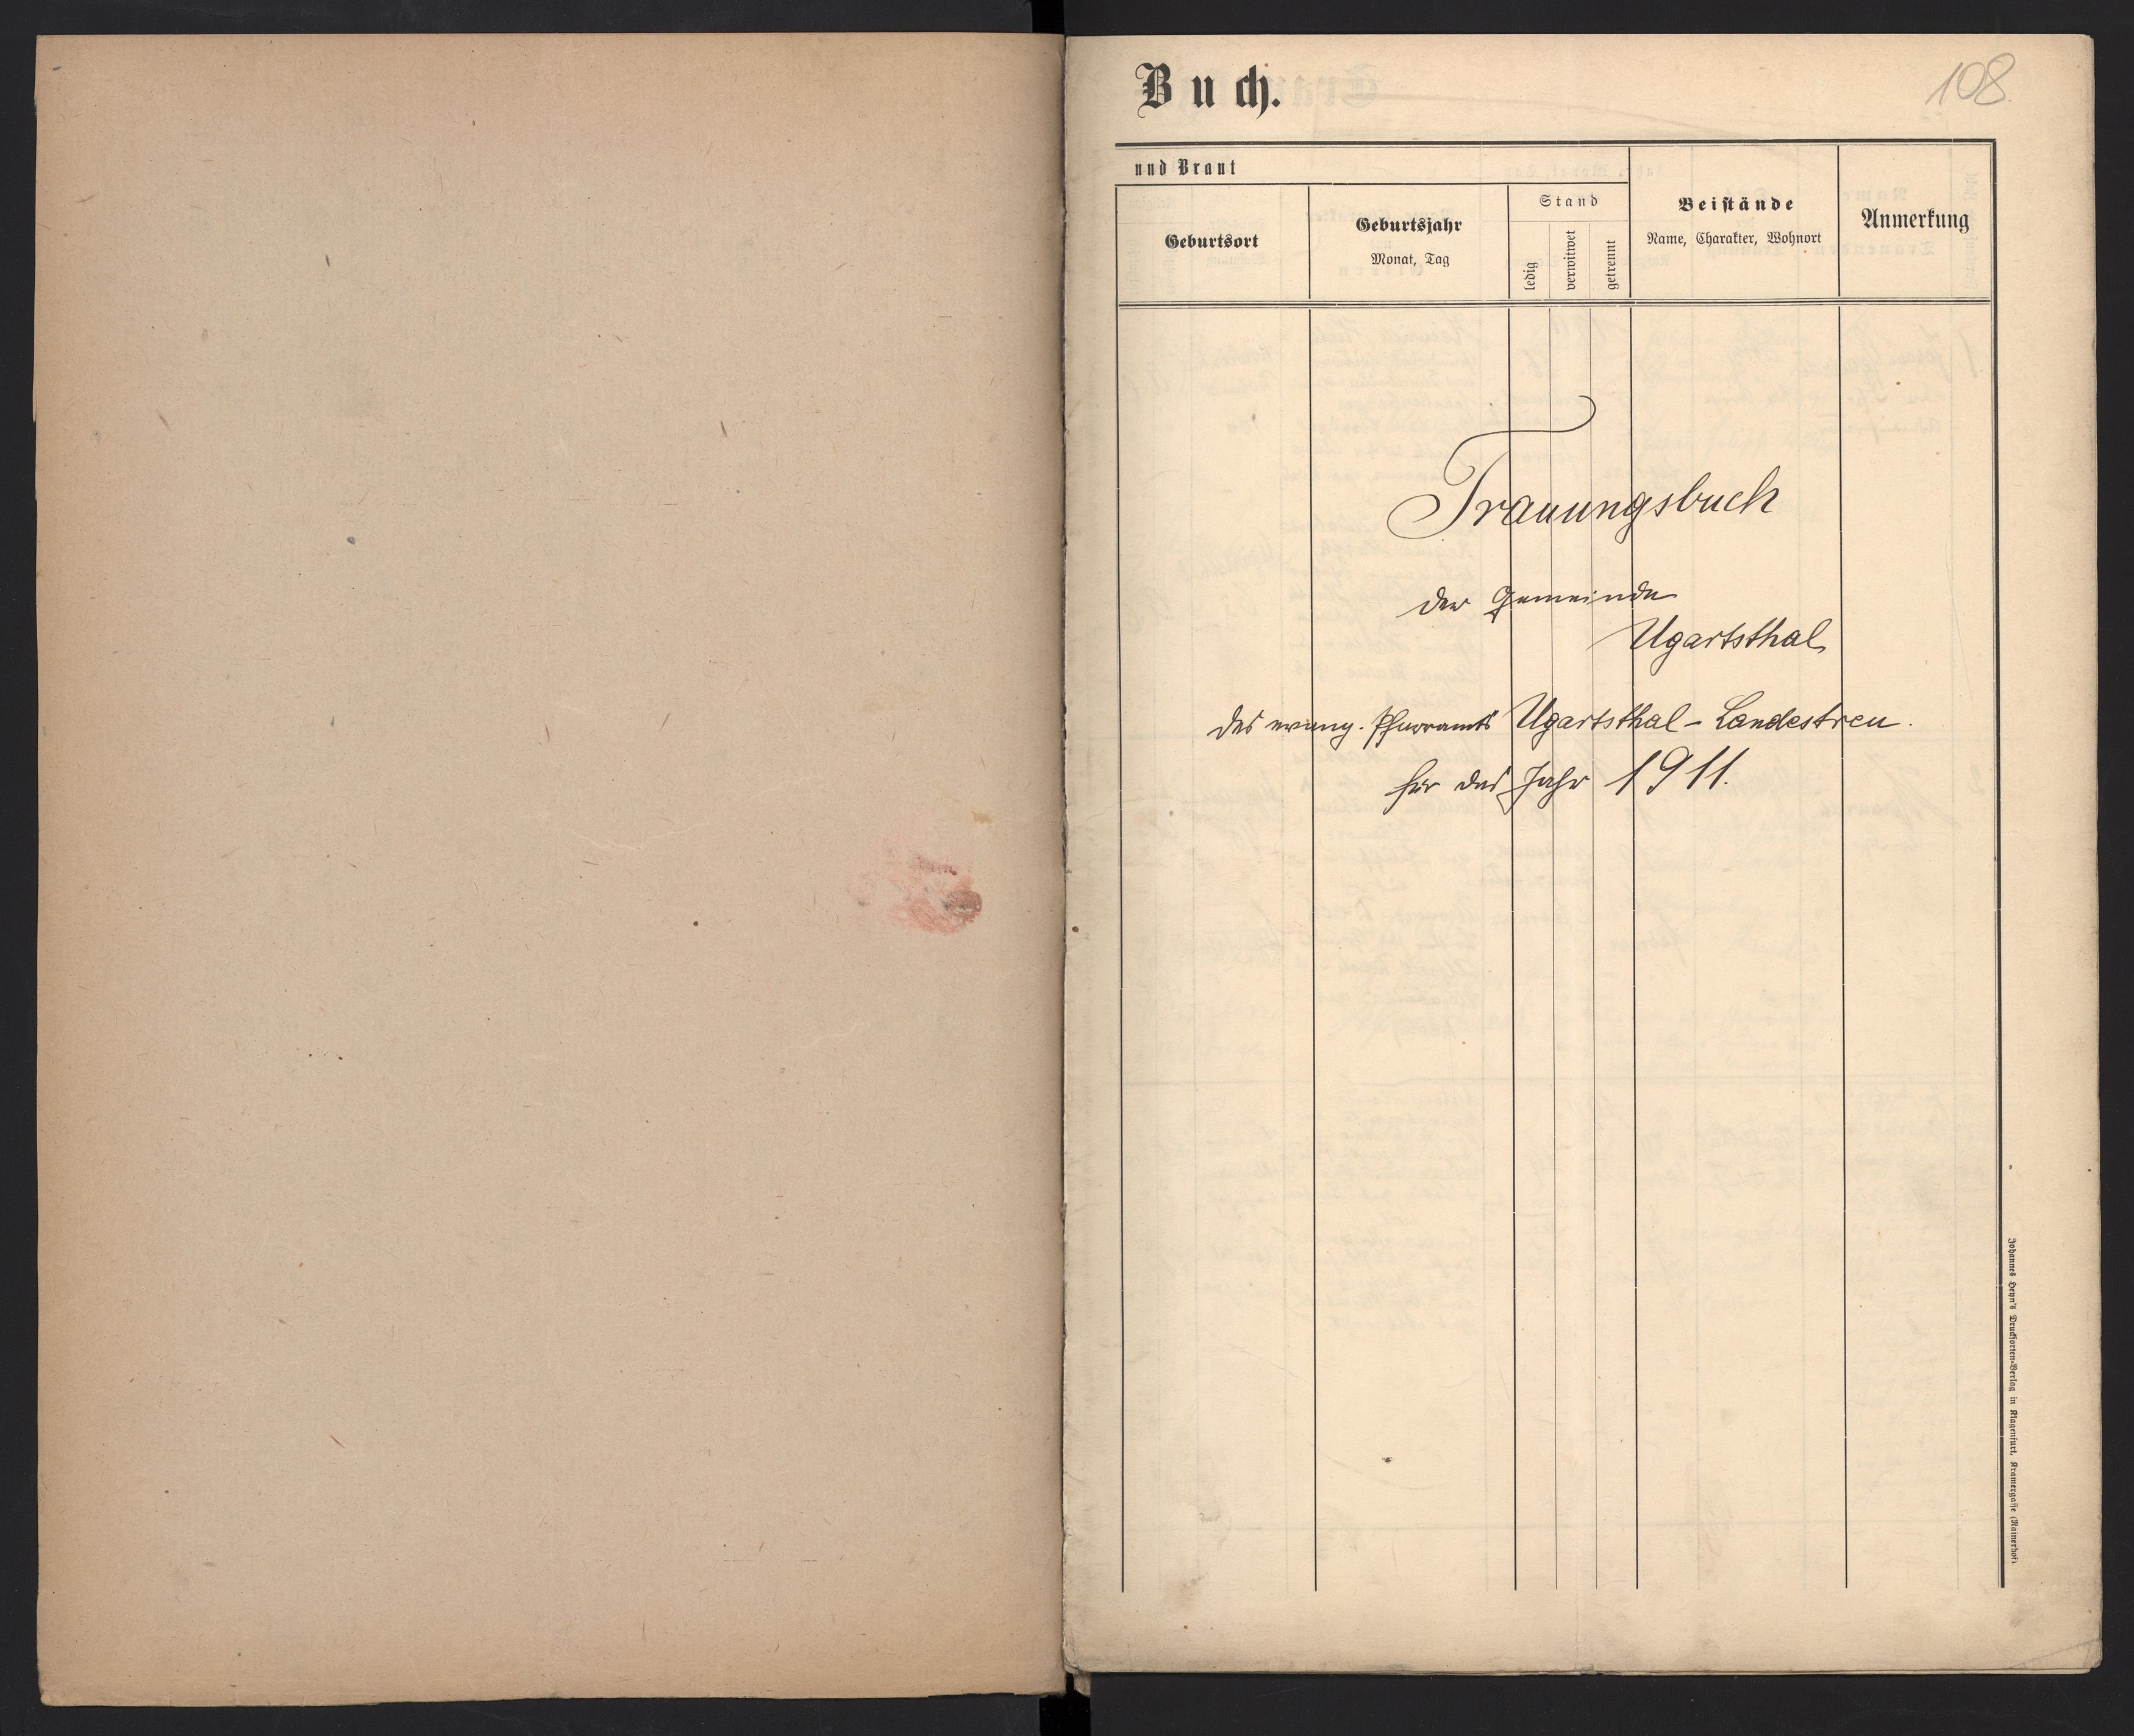 Buch.
108
und Braut
Geburtsort
Geburtsjahr
Monat, Tag
Stand
ledig
verwitwet
getrennt
Beistände
Name, Charakter, Wohnort
Anmerkung
Trauungsbuch
der Gemeinde
Ugartsthal
des evang. Pfarramts Ugartsthal-Landestreu.
für das Jahr 1911.
Johannes Heyn's Drucksorten-Verlag in Klagenfurt, Kramergasse (Rainerhof).